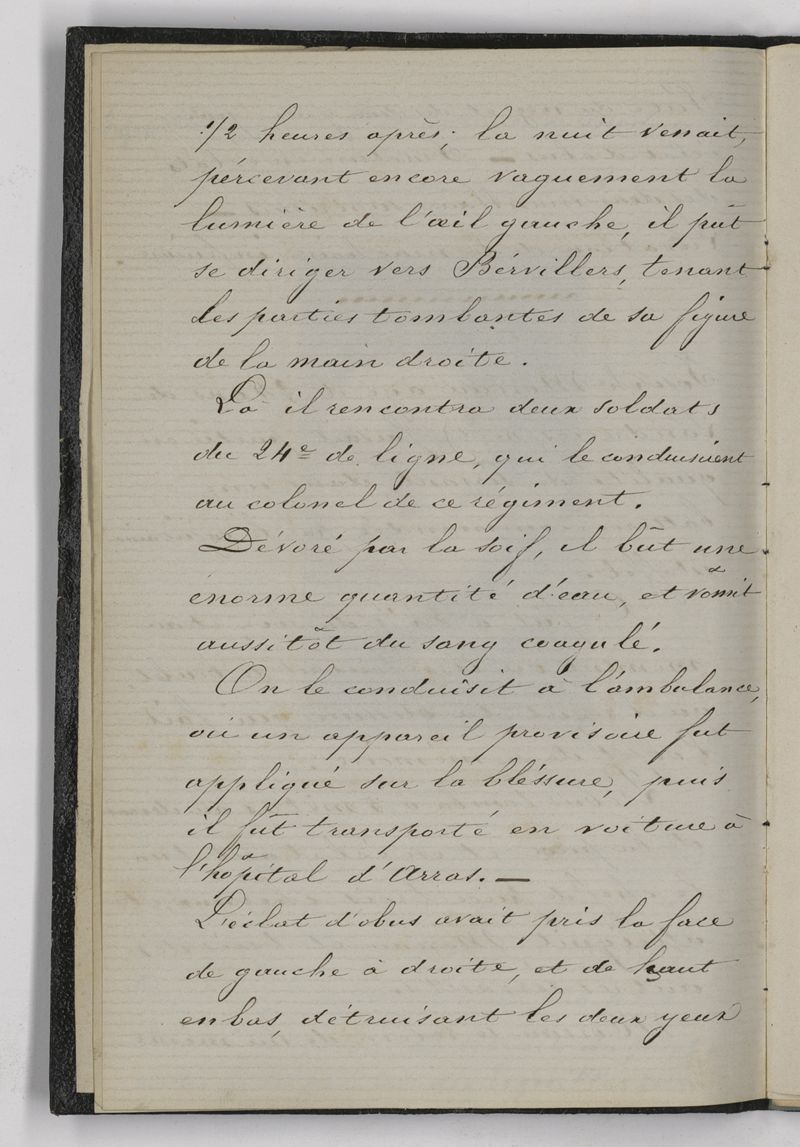 1/2 heures après; la nuit venait,
pércevant encore vaguement la
lumière de l'œil gauche, il pût
se diriger vers Bérvillers, tenant
les parties tombantes de sa figure
de la main droite.
Là il rencontra deux soldats
du 24e de ligne, qui le conduisirent
au colonel de ce régiment.
Dévoré par la soif, il bût une
énorme quantité d'eau, et vômit
aussitôt du sang coagulé.
On le conduisit à l'ambulance,
où un appareil provisoire fut
appliqué sur la bléssure, puis
il fût transporté en voiture à
l'hôpital d'Arras. —
L'éclat d'obus avait pris la face
de gauche à droite, et de haut
en bas, détruisant les deux yeux